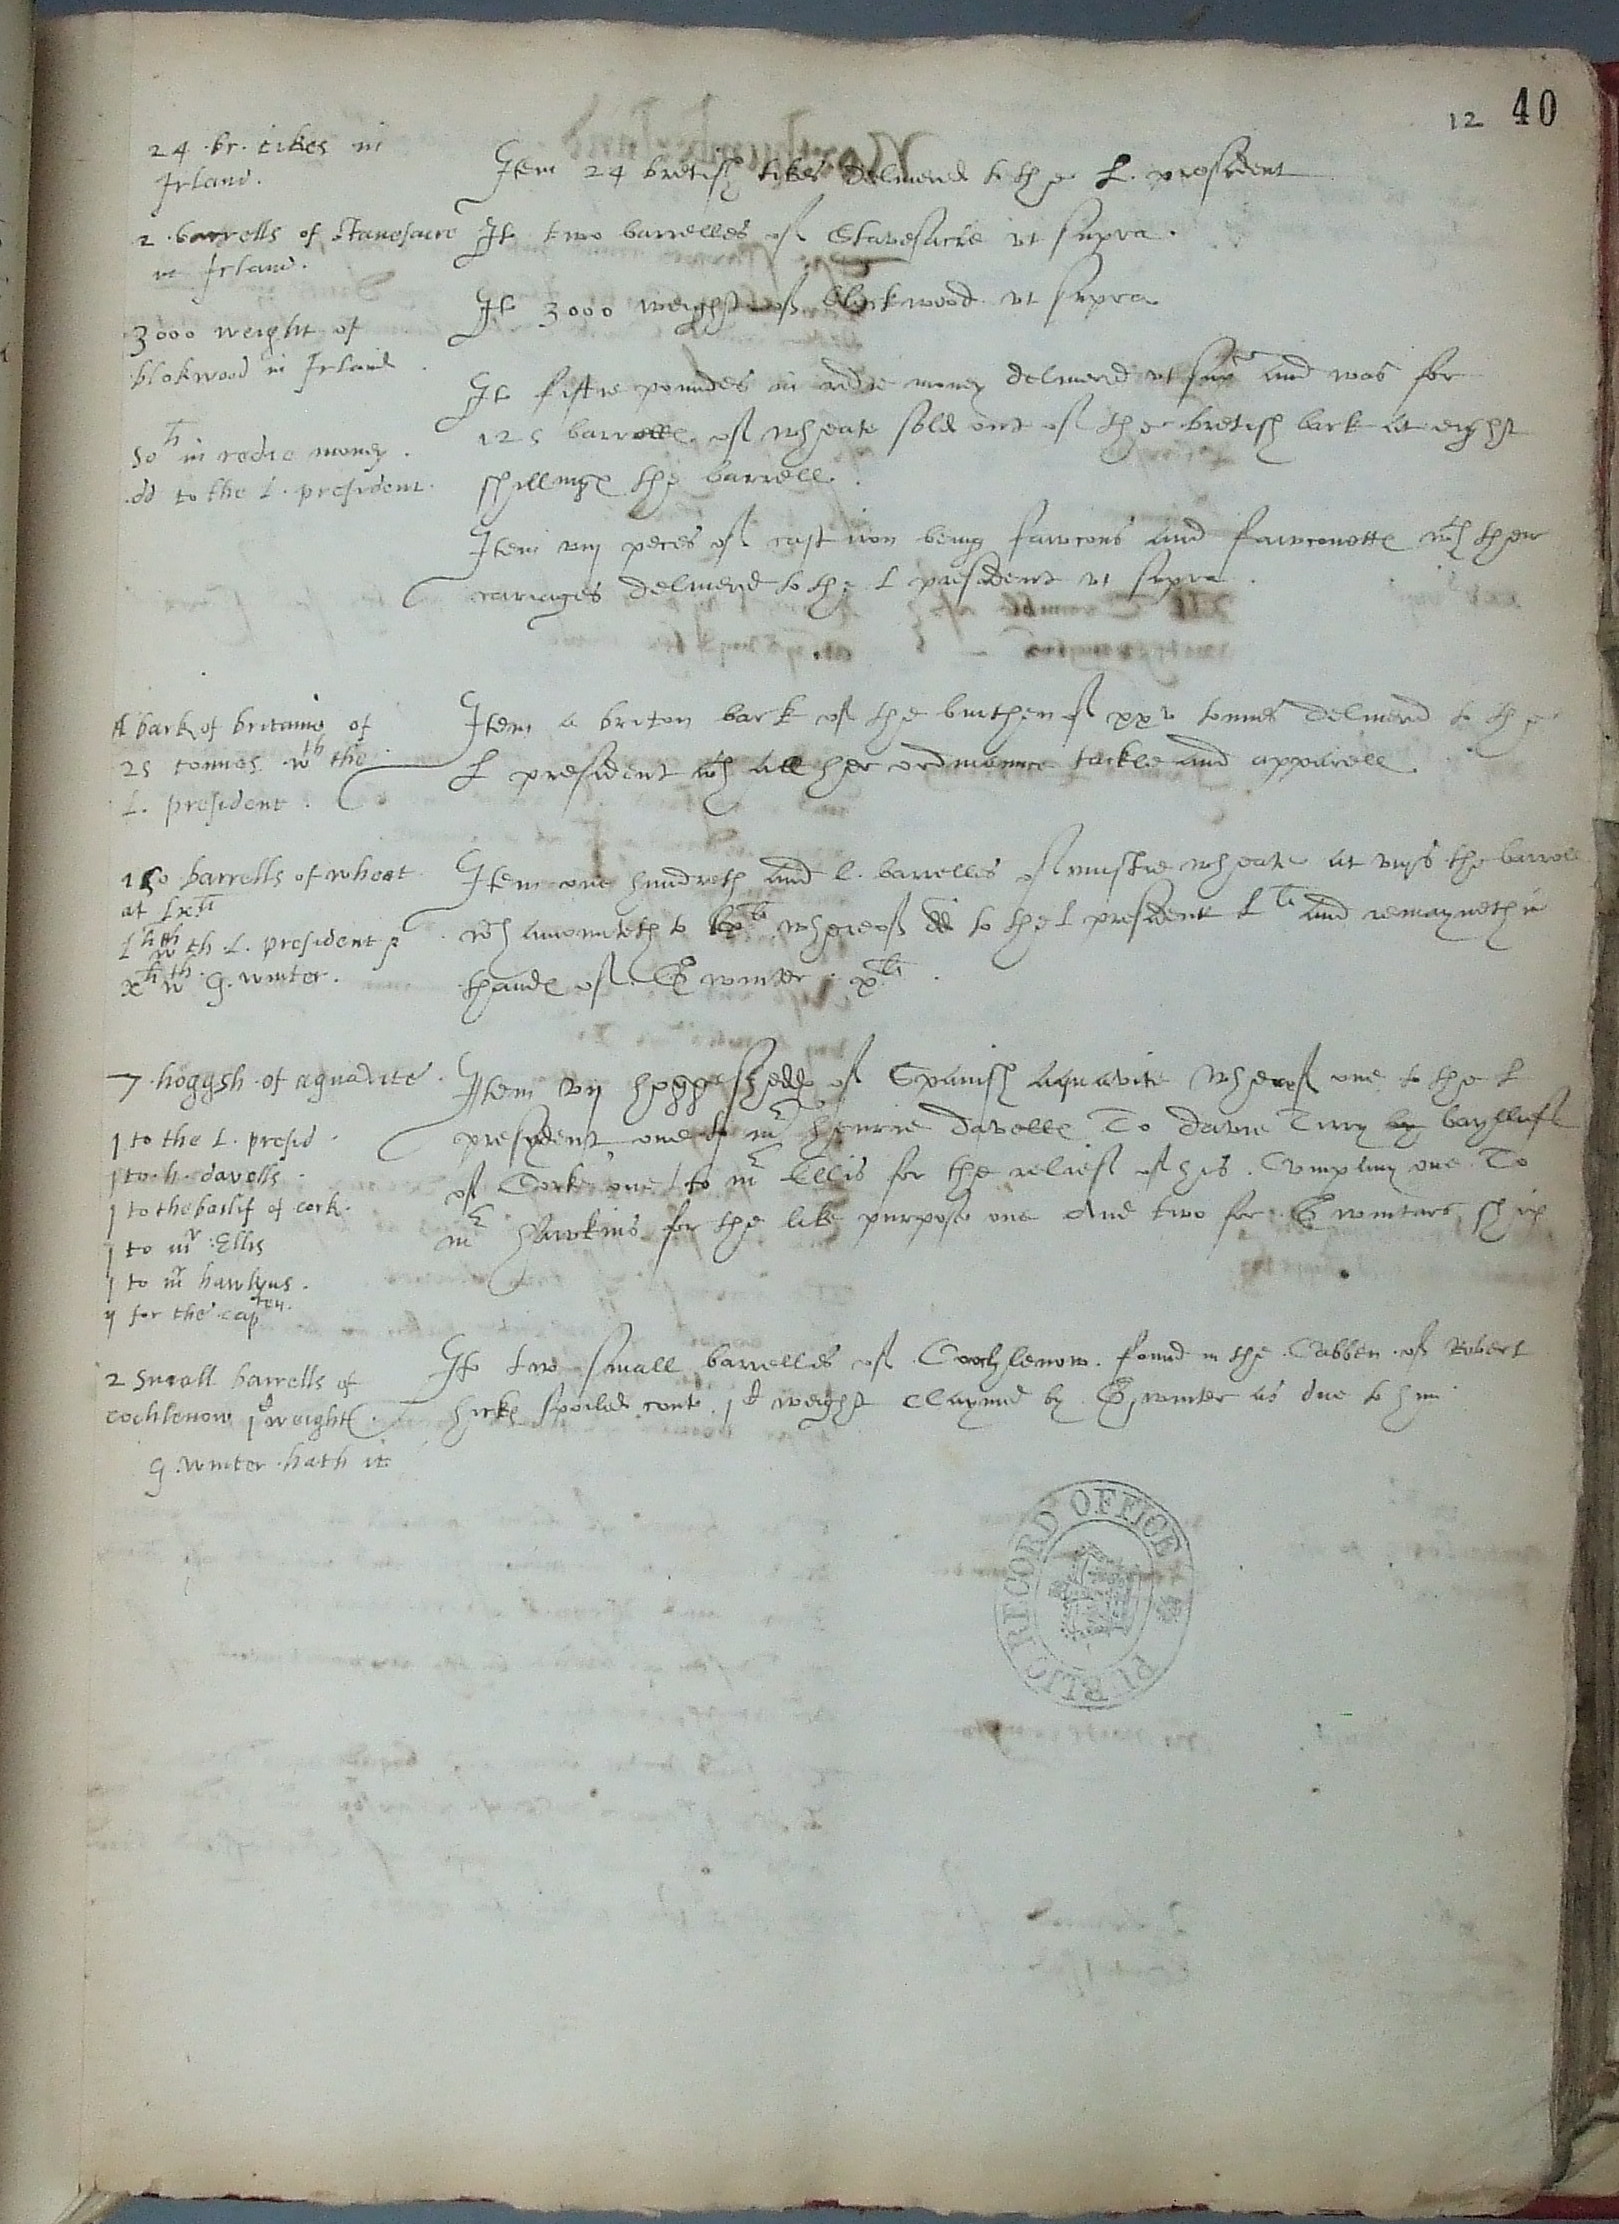 12 40
24 br. tikes in
Irland.
Item 24 bretish tikes delivered to the L. president
2 barrells of stavesacre
in Irland.
It two barrelles of Stavesacre vt supra.
3000 weight of
blokwood in Irland.
It 3000 weight of blockwood vt supra
50 li in redie money.
dd to the L. president.
It fiftie poundes in redie money deliuered vt sup and was for
125 barrelle of wheate sold out of the bretish bark at eight
shillinge the barrell.
Item viij peces of cast iron being fawcons and fawconette wth their
cariages deliuered to the L president vt supra.
A bark of britaine of
25 tonnes wth the
L. president.
Item a briton bark of the burthen of xxv tonnes deliuered to the
L president wth all her ordinaunce tackle and apparell.
150 barrells of wheat
at lx li
l li wth th L. president
x li wth G. winter.
Item one hundreth and l. barrelles of wheate at viijs the barrell
wch amounteth to lx li whereof dd to the L president L li and remayneth in
thande of G winter x li.
7 hoggsh of aquavite.
1 to the L. presid.
1 to h. davells.
1 to the bailif of cork.
1 to mr Ellis
1 to mr hawkyns.
ij for the capten.
Item vij hoggeshedde of Spanish aquavite whereof one to the L
president, one to mr Henrie Davelle To Davie Tirry by baylliefe
of Corke one to mr Ellis for the relief of his Compliny one To
mr Hawkins for the like purpose one And two for G winters ship
2 small barrells of
cochlenow 1 C weight
G. winter hath it
It two small barrelles of Cochlenow found in the Cabben of Robert
Hicke spoiled cont 1 C weight claymed by G winter as due to him
PUBLIC RECORD OFFICE